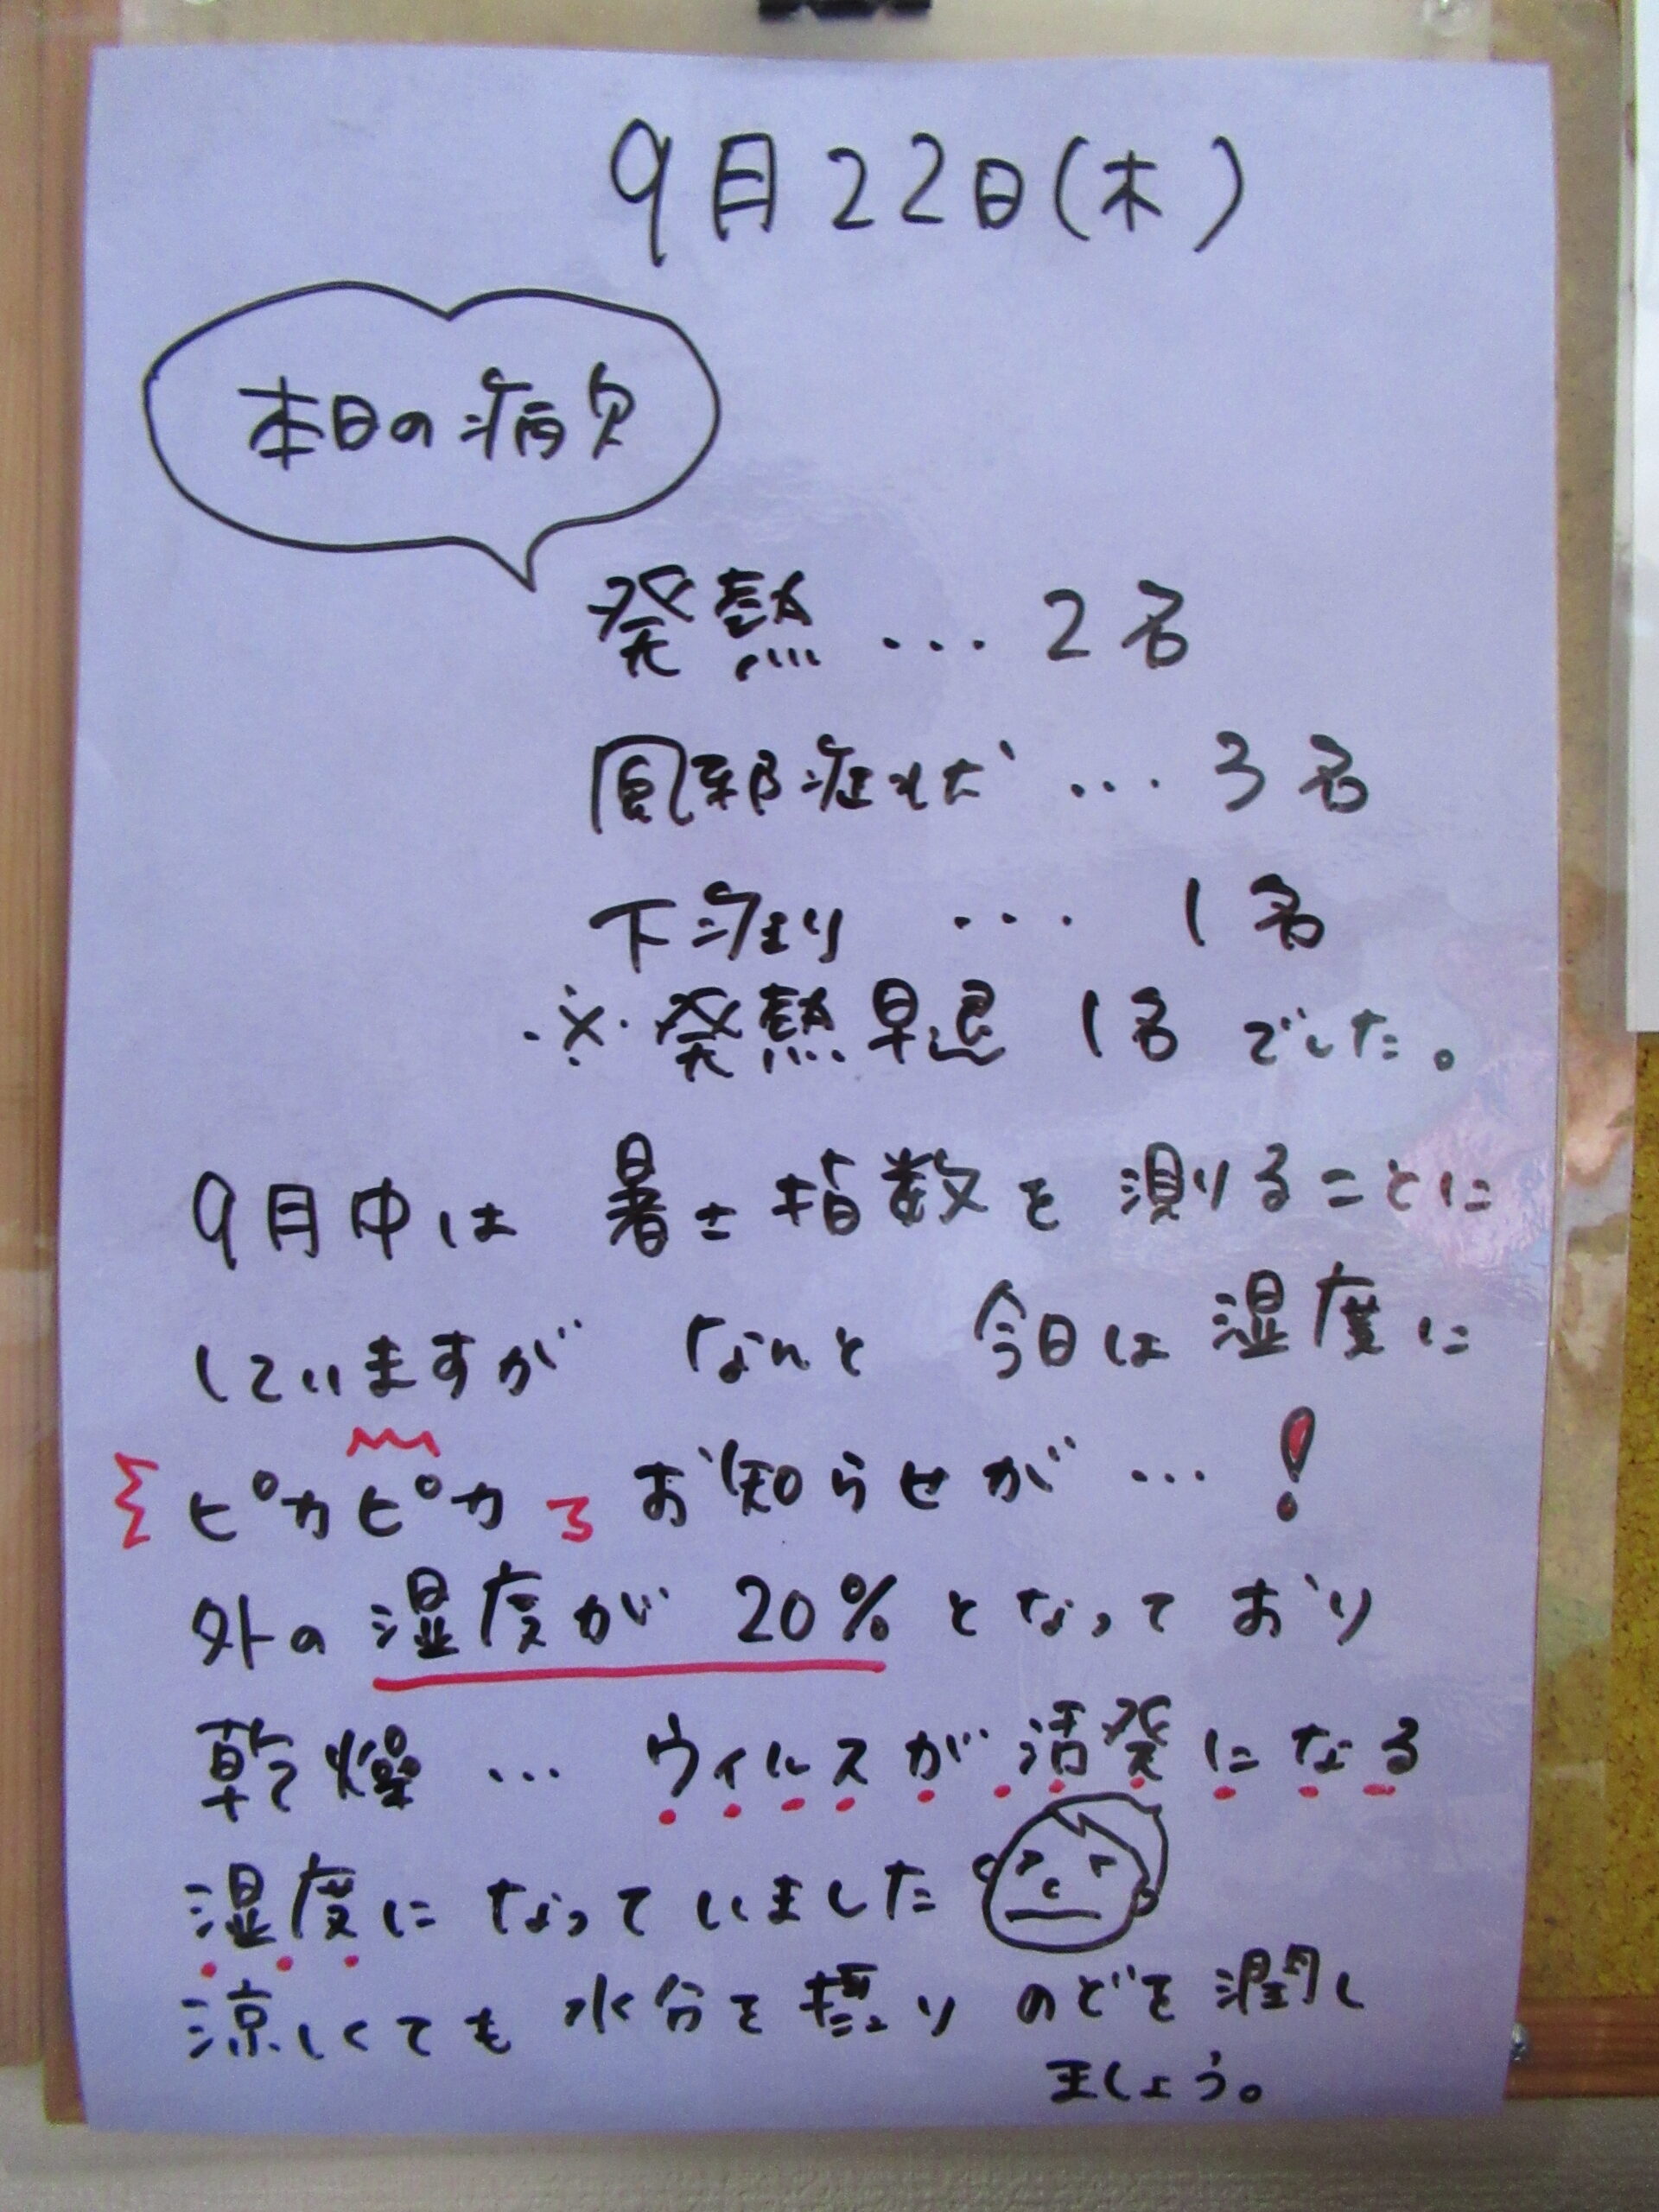 9月22日(木)
本日の病欠
発熱 ... 2名
風邪症状 ... 3名
下痢り ... 1名
※発熱早退 1名 でした。
9月中は 暑さ指数を 測ることに
していますが なんと 今日は 湿度に
ピカピカ お知らせが ... !
外の 湿度が 20% となって おり
乾燥 ... ウィルス が 活発 に なる
湿度に なって いました
涼しくても 水分を 摂り のどを 潤し
ましょう。